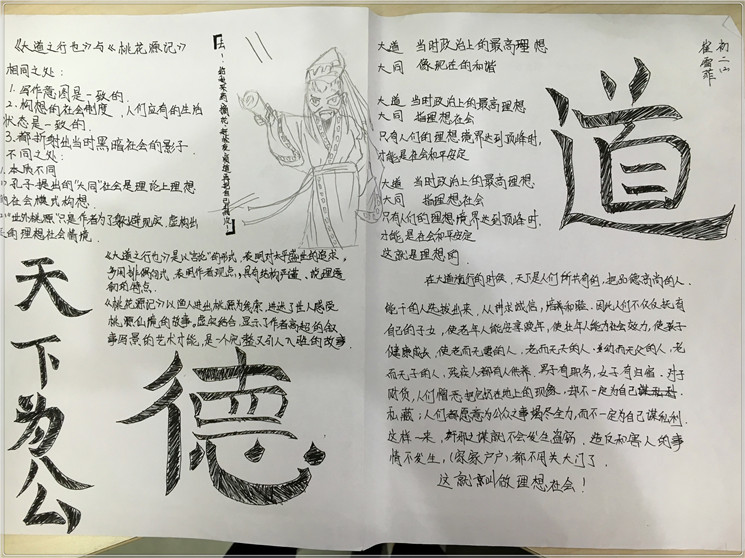 《大道之行也》与《桃花源记》
相同之处：
1. 写作意图是一致的.
2. 构想的社会制度，人们应有的生活
状态是一致的.
3. 都折射出当时黑暗社会的影子
不同之处：
1. 本质不同
孔子提出的"大同"社会是理论上理想
的社会模式构想.
"世外桃源"只是作者为了躲避现实，虚构出
来的理想社会情境.
《大道之行也》是以"言论"的形式，表明对太平盛世的追求，
多用排偶句式，表明作者观点，具有结构严谨、说理透
彻的特点.
《桃花源记》以渔人进出桃源为线索，讲述了渔人感受
桃源仙境的故事。虚实结合，显示了作者高超的叙
事写景的艺术才能，是一个完整又引人入胜的故事.
天下为公
德
大道 当时政治上的最高理想
大同 像现在的和谐
大道 当时政治上的最高理想
大同 指理想社会
只有人们的理想境界达到顶峰时，
才能是社会和平安定
大道 当时政治上的最高理想
大同 指理想社会
只有人们的理想境界达到顶峰时.
才能是社会和平安定
这就是理想的
道
初二(4)
崔雪菲
在大道施行的时候，天下是人们所共有的，把品德高尚的人.
能干的人选拔出来，从讲求诚信，培养和睦。因此人们不仅仅抚育
自己的子女，使老年人能安享晚年，使壮年人能为社会效力，使孩子
健康成长，使老而无妻的人，老而无夫的人，幼而无父的人，老
而无子的人，残疾人都有人供养. 男子有职务，女子有归宿. 对于
财货，人们憎恶把它扔在地上的现象，却不一定为自己
私藏；人们都愿意为公众之事竭尽全力，而不一定为自己谋私利.
这样一来，奸邪之谋就不会发生，盗窃、造反和害人的事
情不发生，(家家户户)都不用关大门了.
这就叫做理想社会！